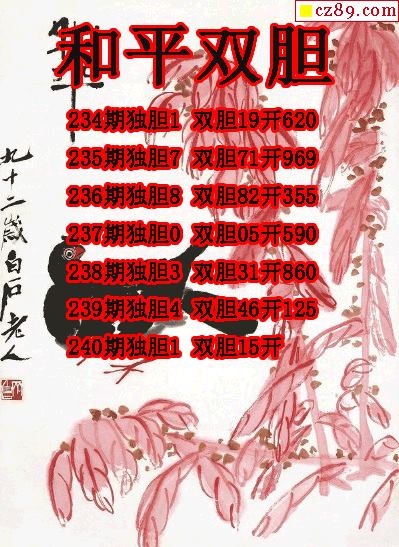 cz89.com
和平双胆
234期独胆1 双胆19开620
235期独胆7 双胆71开969
236期独胆8 双胆82开355
237期独胆0 双胆05开590
238期独胆3 双胆31开860
239期独胆4 双胆46开125
240期独胆1 双胆15开
九十二岁白石老人